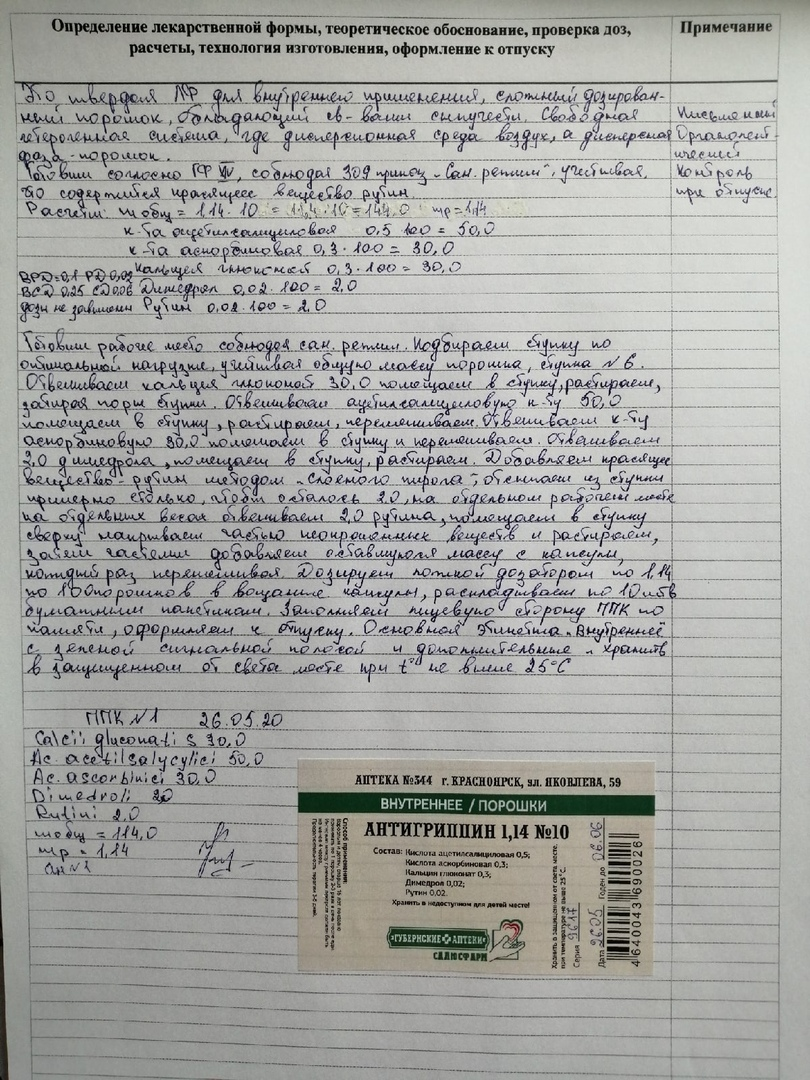 Определение лекарственной формы, теоретическое обоснование, проверка доз,
расчеты, технология изготовления, оформление к отпуску
Примечание
Это твердая ЛФ для внутреннего применения, сложный дозирован-
ный порошок, обладающий св-вами сыпучести. Свободная
гетерогенная система, где дисперсионная среда воздух, а дисперсная
фаза - порошок.
Готовим согласно ГФ XIV, соблюдая 309 приказ "Сан. режим", учитывая,
что содержится красящее вещество рутин.
Письменный
Органолепт-
ический
Контроль
при отпуске
Расчеты: m общ = 1,14 · 10 = 114,0 mр = 1,14
к-та ацетилсалициловая 0,5 · 100 = 50,0
к-та аскорбиновая 0,3 · 100 = 30,0
ВРД=0,1 РД 0,02 Кальция глюконат 0,3 · 100 = 30,0
ВСД 0,25 СД 0,06 Димедрол 0,02 · 100 = 2,0
дозы не завышены Рутин 0,02 · 100 = 2,0
Готовим рабочее место соблюдая сан. режим. Подбираем ступку по
оптимальной нагрузке, учитывая общую массу порошка, ступка № 6.
Отвешиваем кальция глюконат 30,0 помещаем в ступку, растираем,
затирая поры ступки. Отвешиваем ацетилсалициловую к-ту 50,0
помещаем в ступку, растираем, перемешиваем. Отвешиваем к-ту
аскорбиновую 30,0 помещаем в ступку и перемешиваем. Отвешиваем
2,0 димедрола, помещаем в ступку, растираем. Добавляем красящее
вещество - рутин методом "слоеного пирога", отсыпаем из ступки
примерно столько, чтоб осталось 2,0, на отдельном рабочем месте
на отдельных весах отвешиваем 2,0 рутина, помещаем в ступку
сверху накрываем частью неокрашенных веществ и растираем,
затем частями добавляем оставшуюся массу с капсулы,
каждый раз перемешивая. Дозируем ложкой дозатором по 1,14
по 100 порошков в вощаные капсулы, раскладываем по 10 штб
бумажным пакетикам. Заполняем лицевую сторону ППК по
памяти, оформляем к отпуску. Основная этикетка "Внутреннее"
с зеленой сигнальной полосой и дополнительные "Хранить
в защищенном от света месте при t° не выше 25°C
ППК №1 26.05.20
Calcii gluconati s 30,0
Ac. acetilsalycylici 50,0
Ac. ascorbinici 30,0
Dimedroli 2,0
Rutini 2,0
mобщ = 114,0
mр = 1,14
АПТЕКА №344 г. КРАСНОЯРСК, ул. ЯКОВЛЕВА, 59
ВНУТРЕННЕЕ / ПОРОШКИ
АНТИГРИППИН 1,14 №10
Состав: Кислота ацетилсалициловая 0,5;
Кислота аскорбиновая 0,3;
Кальция глюконат 0,3;
Димедрол 0,02;
Рутин 0,02.
Хранить в недоступном для детей месте!
«ГУБЕРНСКИЕ АПТЕКИ»
САДЮСФАРМ
Способ применения:
Хранить в защищенном от света месте,
при температуре не выше 25°С.
Серия 9617
Дата 26.05 Годен до 06.06
4 640043 690026